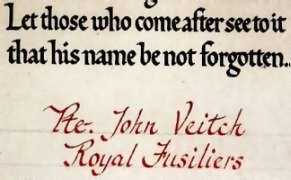 Let those who come after see to it
that his name be not forgotten..
Pte. John Veitch
Royal Fusiliers